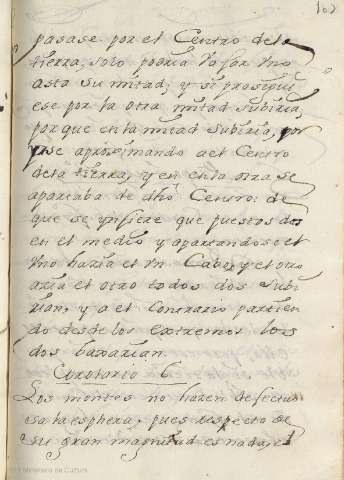 102
pasase por el Centro dela
tierra, solo podria vajar vno
asta su mitad, y si prosegui
ese por la otra mitad subiria,
porque en la mitad subiria, por
yrse aproximando a el Centro
dela tierra, y en en la otra se
apartaba de dho Centro: de
que se ynfiere que puestos dos
en el medio y apartandose el
vno hazia el vn Cabo, y el otro
azia el otro todos dos subi
rian, y a el Contrario partien
do desde los extremos los
dos baxarian.
Corolario 6
Los montes no hazen defectuo
sa la esphera, pues respecto de
su gran magnitud es nada, el
Ministerio de Cultura